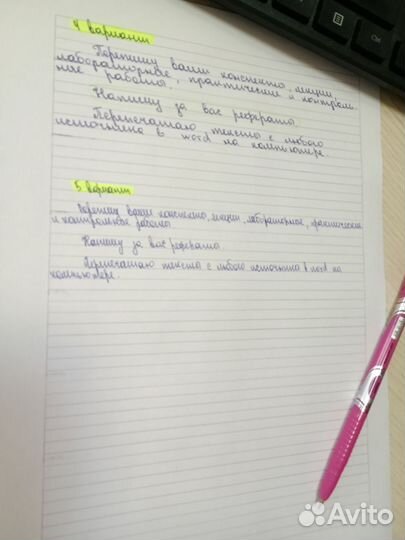 4 вариант
Перепишу ваши конспекты, лекции,
лабораторные, практические и контроль-
ные работы.
Напишу за вас рефераты.
Перепечатаю тексты с любого
источника в word на компьютере.
5 вариант
Перепишу ваши конспекты, лекции, лабораторные, практические
и контрольные работы
Напишу за вас рефераты.
Перепечатаю тексты с любого источника в word на
компьютере.
Avito